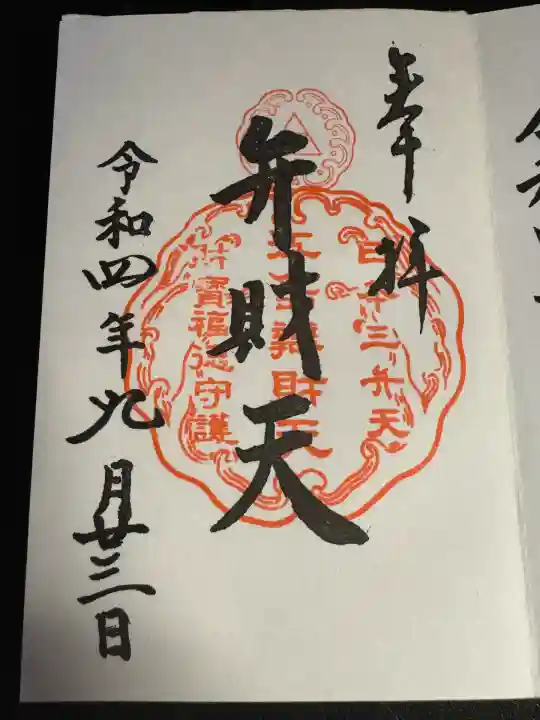 奉拝
弁財天
日本三弁天
財寳福徳守護
令和四年九月廿三日